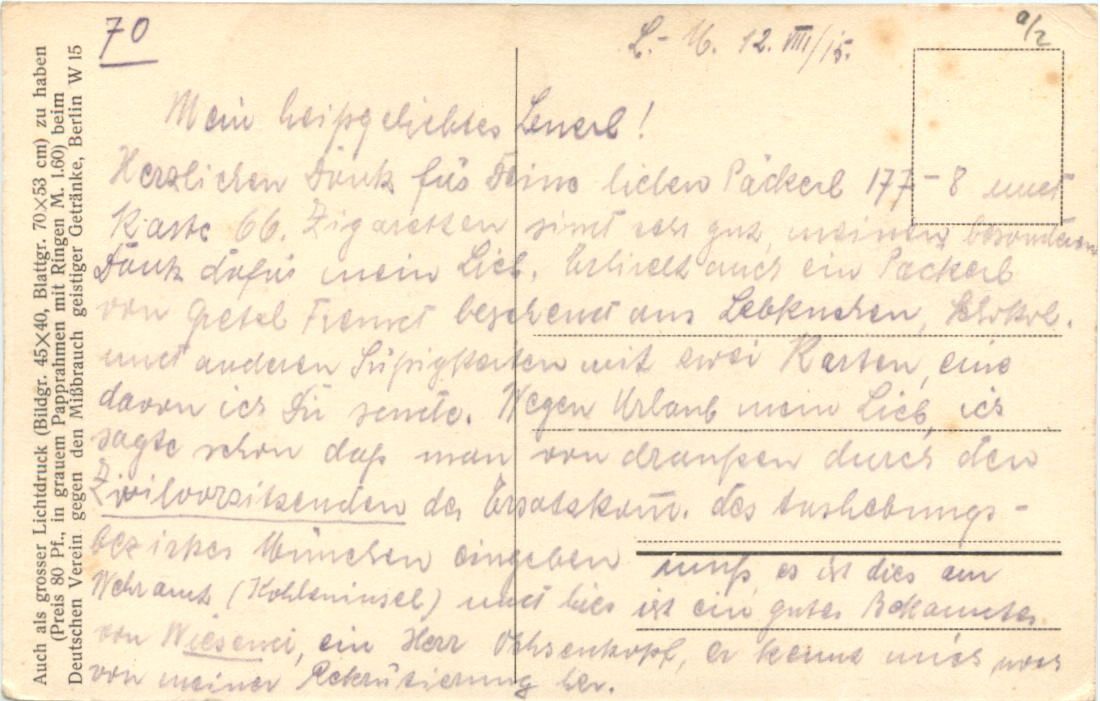 70
L.- M. 12. VIII/15.
a/2
Mein heißgeliebtes Lenerl!
Herzlichen Dank für Deine lieben Päckerl 177-8 und
Karte 66. Zigaretten sind sehr gut meinen besonderen
Dank dafür mein Lieb. Erhielt auch ein Packerl
von Gretel bestehend aus Lebkuchen, Schokol.
und anderen Süßigkeiten mit zwei Karten, eine
davon ich Dir sende. Wegen Urlaub mein Lieb, ich
sagte schon daß man von draußen durch den
Zivilvorsitzenden der Ersatzkom. des Aushebungs-
bezirkes München eingeben muß, es ist dies am
Wehramt (Kohleninsel) und hier ist ein guter Bekannter
von Wiesmei, ein Herr Ochsenkopf, er kennt mich noch
von meiner Rekrutierung her.
Auch als grosser Lichtdruck (Bildgr. 45×40, Blattgr. 70×53 cm) zu haben
(Preis 80 Pf., in grauem Papprahmen mit Ringen M. 1.60) beim
Deutschen Verein gegen den Mißbrauch geistiger Getränke, Berlin W 15